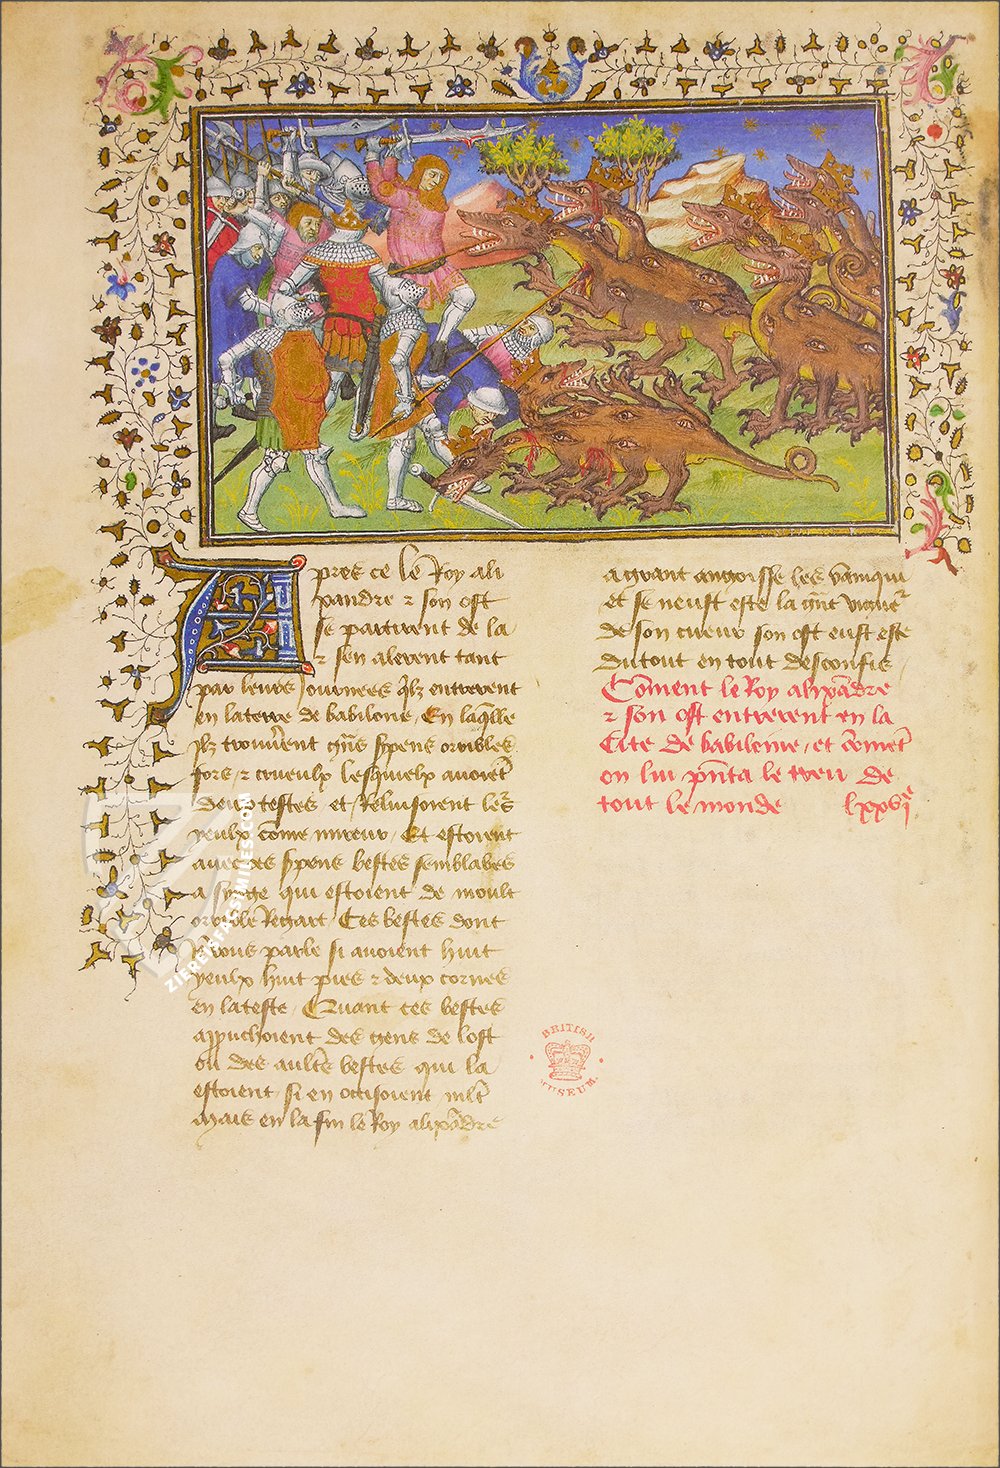 Apres ce le Roy ali
pandre ⁊ son ost
se partirent de la
⁊ sen alerent tant
par leurs Journees qlz entrerent
en laterre de babilone, En laqlle
Ilz trouverent gns spens orribles
fors, ⁊ crueulx lesquielx avoiēt
deux testes et Reluisoient lers
yeulx cōme mireur, Et estoient
avec ces spens bestes semblables
a singe qui estoient de moult
orrible Regart, Ces bestes dont
Je vous parle si avoient huit
yeulx huit pies ⁊ deux cornes
en lateste, Quant ces bestes
apruchoient des gens de lost
ou des aultēs bestes qui la
estoient, si en occisoient mlt
Mais en la fin le Roy alixādre
agrant angoisse les vainqui
Et se neust este la gnt vigur
de son cueur son ost eust este
du tout en tout desconfis
Cōment le Roy alixādre
⁊ son ost entrerent en la
Cite de babiloine, et cōmēt
on lui pnta le treu de
tout le monde lxxvi e
BRITISH
MUSEUM
ZIEREIS FACSIMILES.COM